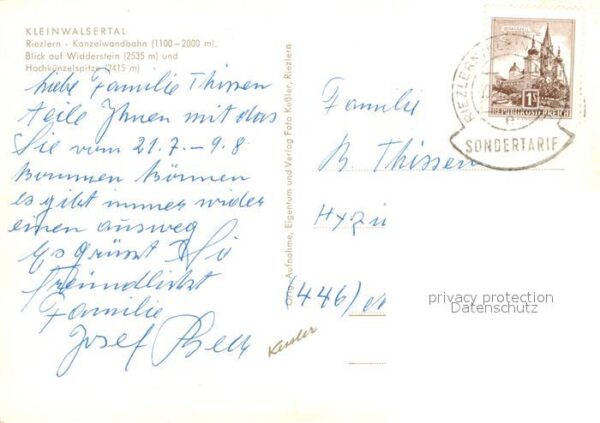 KLEINWALSERTAL
Riezlern - Kanzelwandbahn (1100-2000 m),
Blick auf Widderstein (2535 m) und
Hochkünzelspitze (2415 m)
Liebe Familie Thissen
teile Ihnen mit das
Sie vom 21.7. - 9.8
kommen können
es gibt immer wider
einen ausweg
Es grüsst Sie
freundlichst
Familie
Josef Beck
Orig. Aufnahme, Eigentum und Verlag Foto Keßler, Riezlern
Kessler
MARIAZELL
1S
REPUBLIK ÖSTERREICH
RIEZLERN
e
SONDERTARIF
Familie
B. Thissen
(446)
privacy protection
Datenschutz